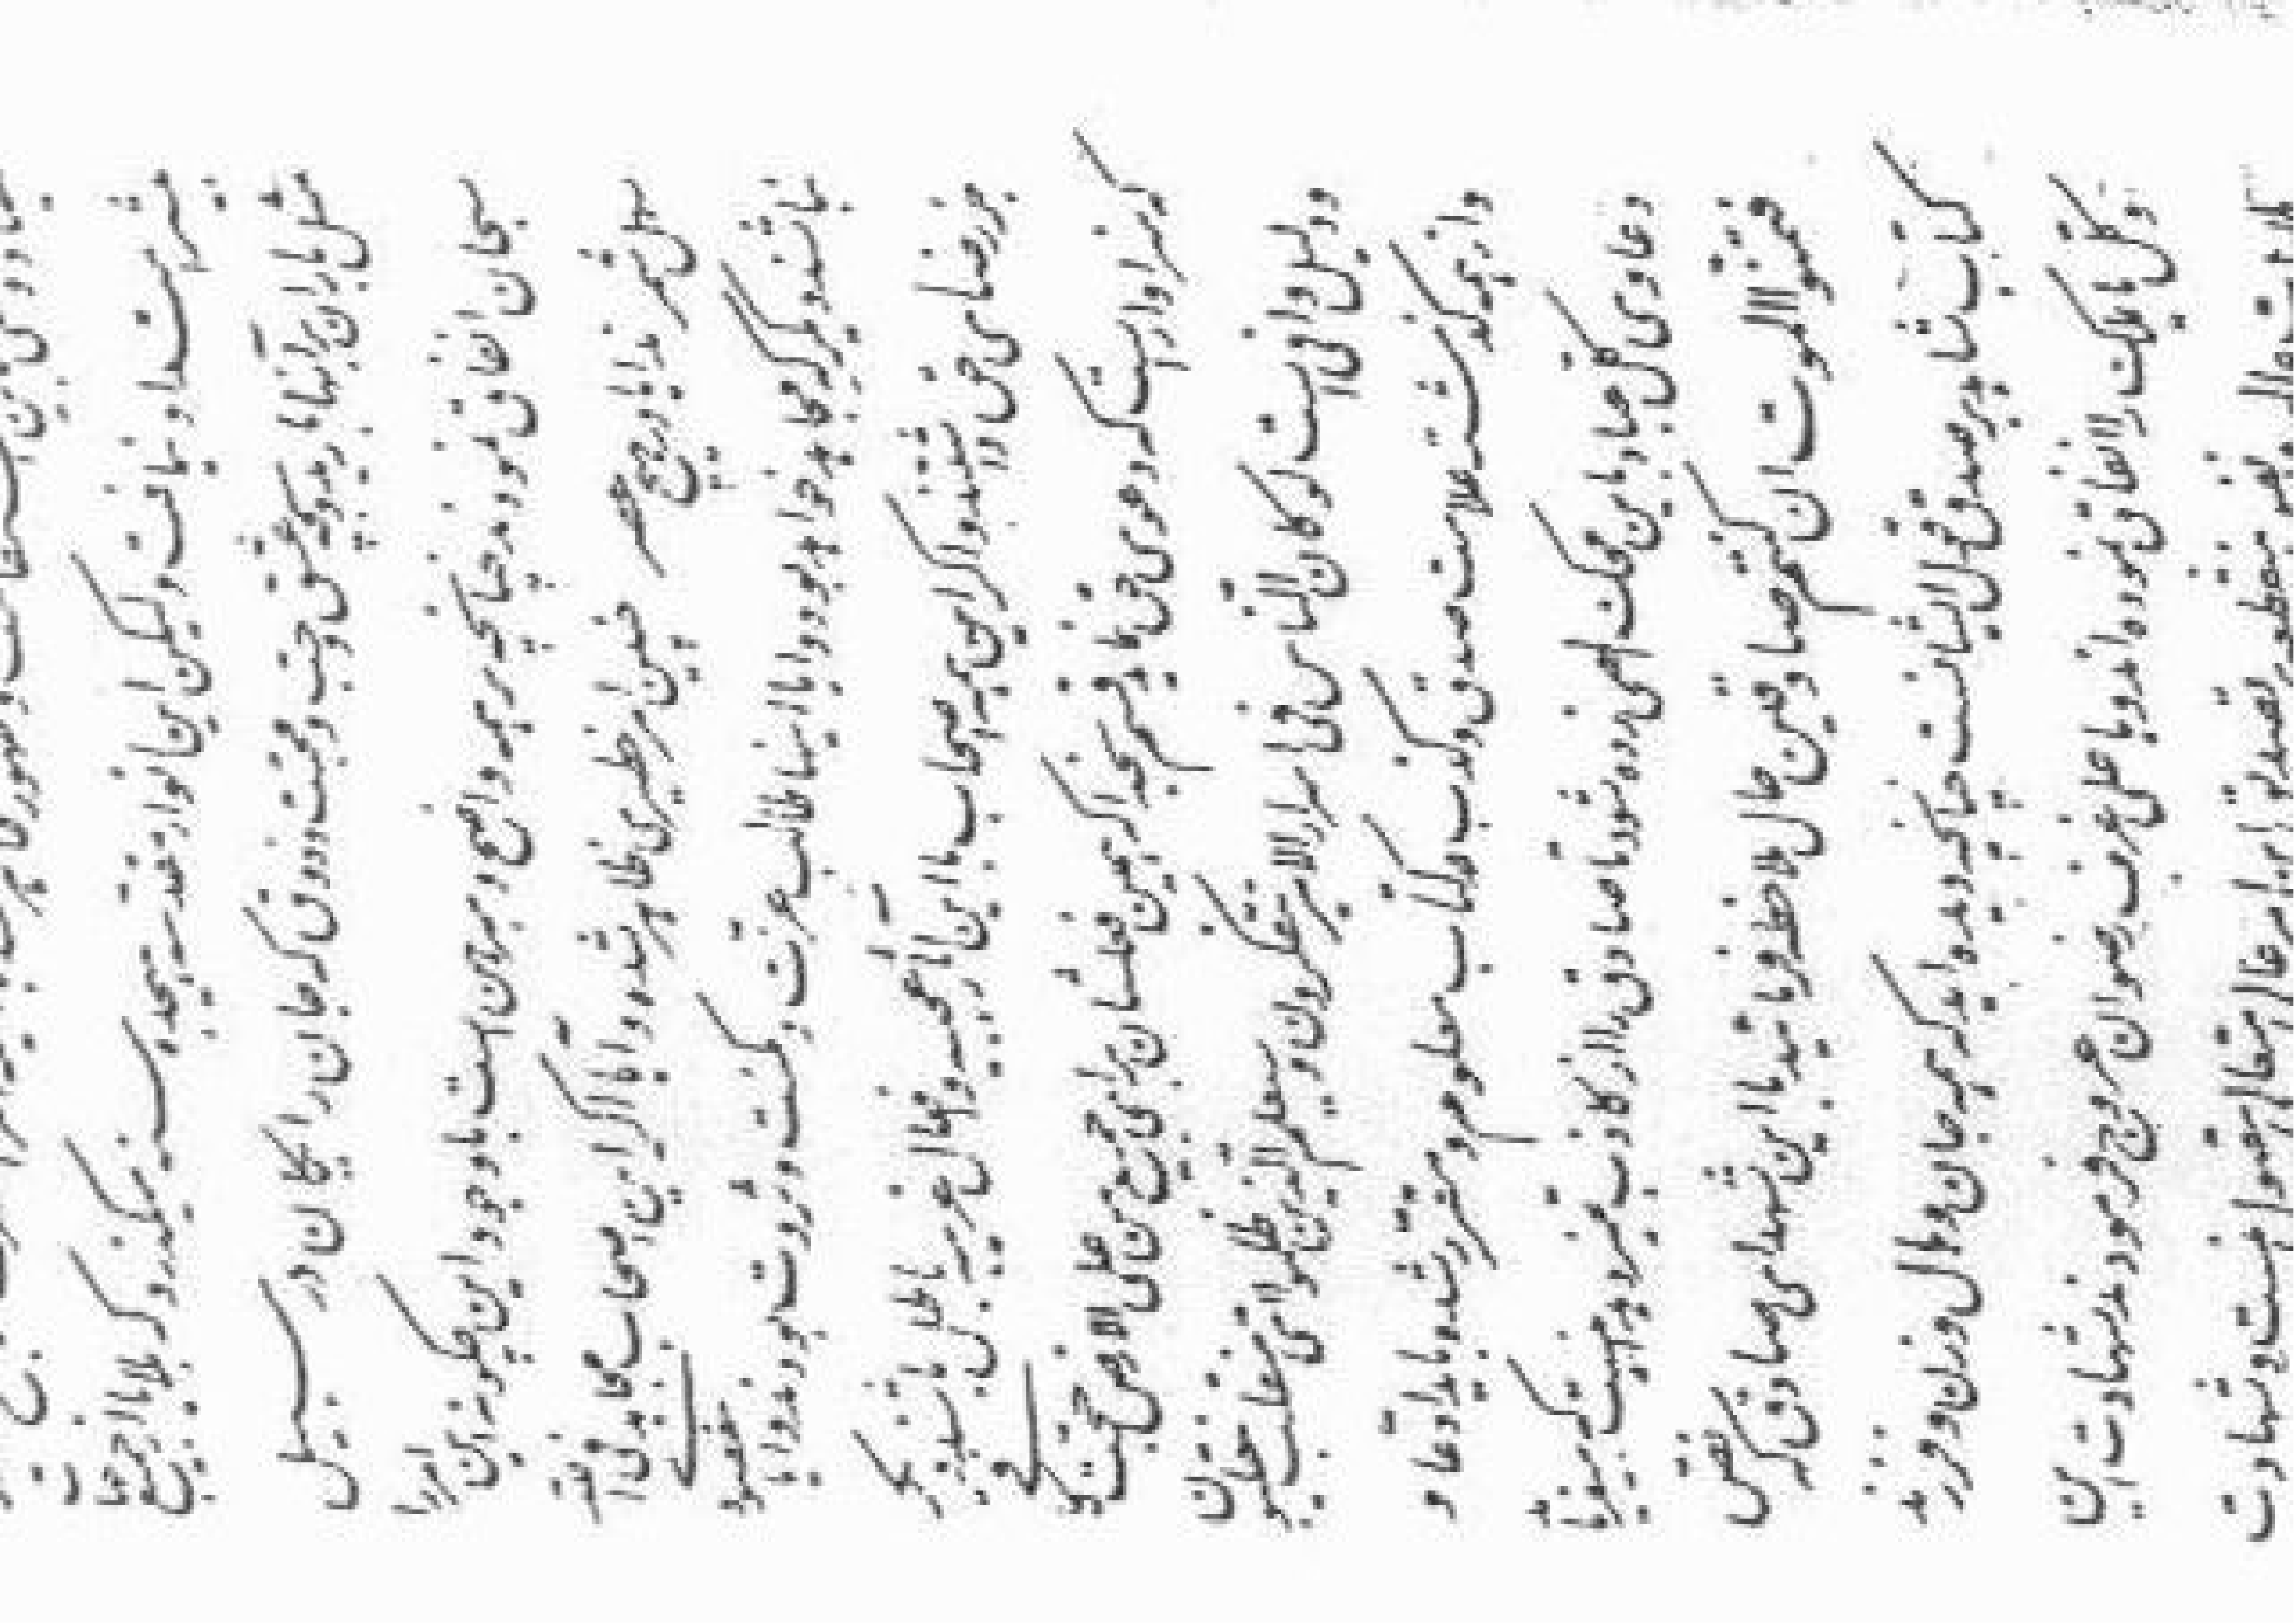 بیشتر امتداد نیافت ولیکن این انوار مقدسه هیجده سنه میگذرد که بلایا از جمیع جهات
مثل باران بر آنها بارید و بچه عشق و حب و محبت و ذوق که جان رایگان در سبیل
سبحان انفاق نمودند چنانچه بر همه واضح و مبرهن است با وجود این چگونه این امر را
سهل شمرند آیا در هیچ عصر چنین امر خطیری ظاهر شده و آیا اگر این اصحاب مجاهد فی الله
نباشند دیگر که مجاهد خواهد بود و آیا اینها طالب عزت و مکنت و ثروت بودند و آیا مقصودی
جز رضای حق داشتند و اگر این همه اصحاب با این آثار عجیبه و افعال غریبه باطل باشند دیگر که
سزاوار است که دعوی حق نماید قسم بخدا که همین فعلشان برای جمیع من علی الارض حجت کافی
و دلیل وافی است لو کان الناس فی اسرار الامر یتفکرون و سیعلم الذین ظلموا ای منقلب ینقلبون
و از همه گذشته علامت صدق و کذب در کتاب معلوم و مقرر شده باید ادعا و
دعاوی کل عباد باین محک الهی زده شود تا صادق را از کاذب تمیز دهد اینست که میفرماید
فتمنوا الموت ان کنتم صادقین حال ملاحظه فرمائید با این شهدای صادق که نص
کتاب شاهد بر صدق قول ایشانست چنانچه دیده‌اید که همه جان و مال و زن و فرزند
و کل ما یملک را انفاق نموده‌اند و باعلی غرف رضوان عروج فرمودند شهادت این
طلعات عالیه و انفس منقطعه بر تصدیق این امر عالی متعالی مقبول نیست و شهادت